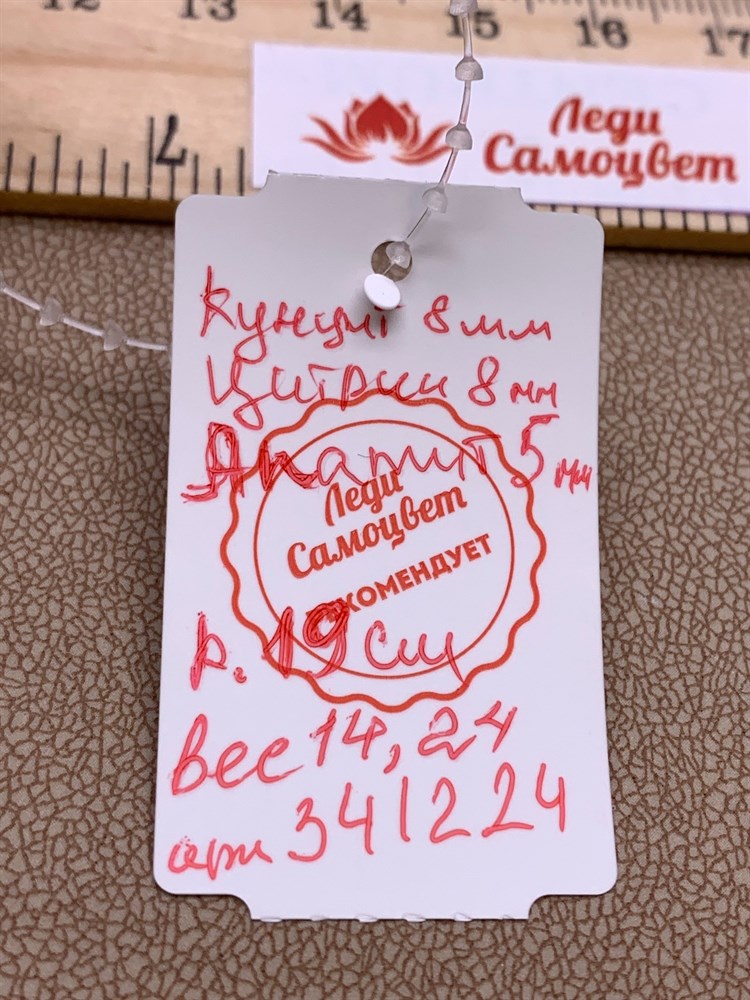 12 13 14 15 16 17
7
Леди
Самоцвет
Кунцит 8 мм
Цитрин 8 мм
Апатит 5 мм
Леди
Самоцвет
РЕКОМЕНДУЕТ
р. 19 см
вес 14,24
арт 341224